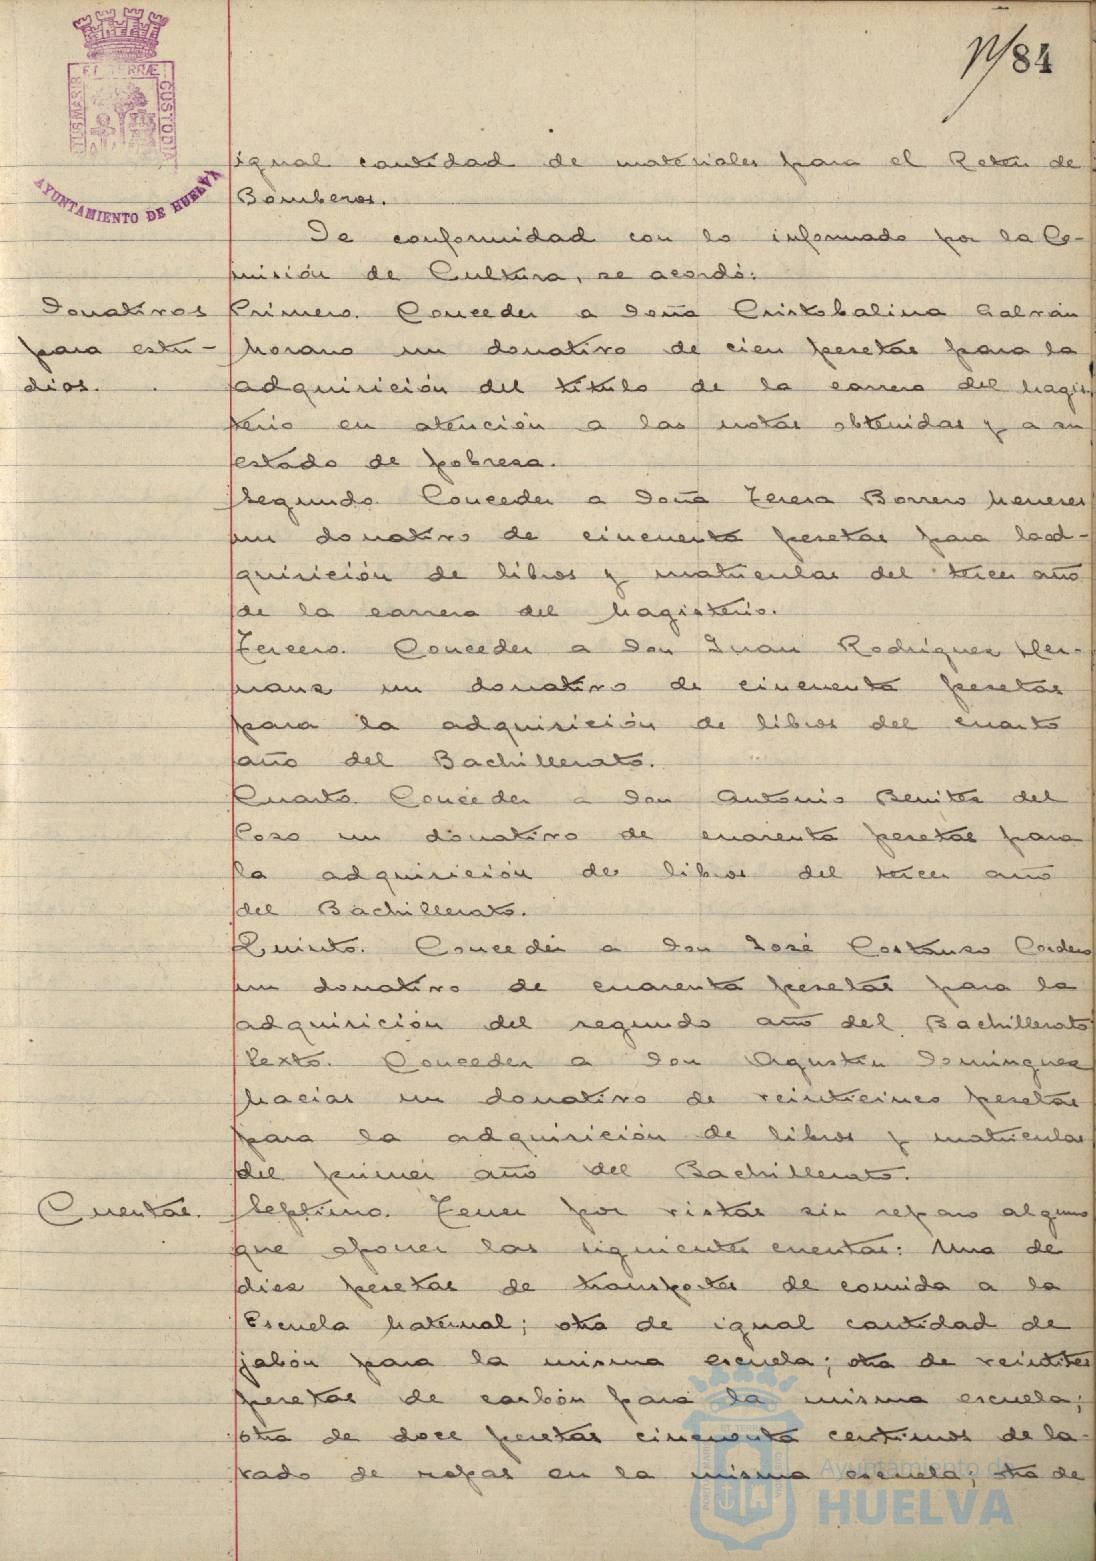 84
PORTUS MARIS ET TERRÆ CUSTODIA
AYUNTAMIENTO DE HUELVA
igual cantidad de materiales para el Reten de
Bomberos.
De conformidad con lo informado por la Co-
misión de Cultura, se acordó:
Donativos
para estu-
dios.
Primero. Conceder a Doña Cristobalina Galván
Morano un donativo de cien pesetas para la
adquisición del título de la carrera del Magis-
terio en atención a las notas obtenidas y a su
estado de pobresa.
Segundo. Conceder a Doña Teresa Borrero Meneses
un donativo de cincuenta pesetas para la ad-
quisición de libros y matriculas del tercer año
de la carrera del Magisterio.
Tercero. Conceder a Don Juan Rodríguez Her-
nanz un donativo de cincuenta pesetas
para la adquisición de libros del cuarto
año del Bachillerato.
Cuarto. Conceder a Don Antonio Benitez del
Poso un donativo de cuarenta pesetas para
la adquisición de libros del tercer año
del Bachillerato.
Quinto. Conceder a Don José Costanso Cordero
un donativo de cuarenta pesetas para la
adquisición del segundo año del Bachillerato
Sexto. Conceder a Don Agustín Domínguez
Macias un donativo de veinticinco pesetas
para la adquisición de libros y matriculas
del primer año del Bachillerato.
Cuentas.
Septimo. Tener por vistas sin reparo alguno
que oponer las siguientes cuentas: Una de
diez pesetas de transportes de comida a la
Escuela Maternal; otra de igual cantidad de
jabón para la misma escuela; otra de veintitres
pesetas de carbón para la misma escuela;
otra de doce pesetas cincuenta centimos de la-
vado de ropas en la misma escuela; otra de
Ayuntamiento de
HUELVA